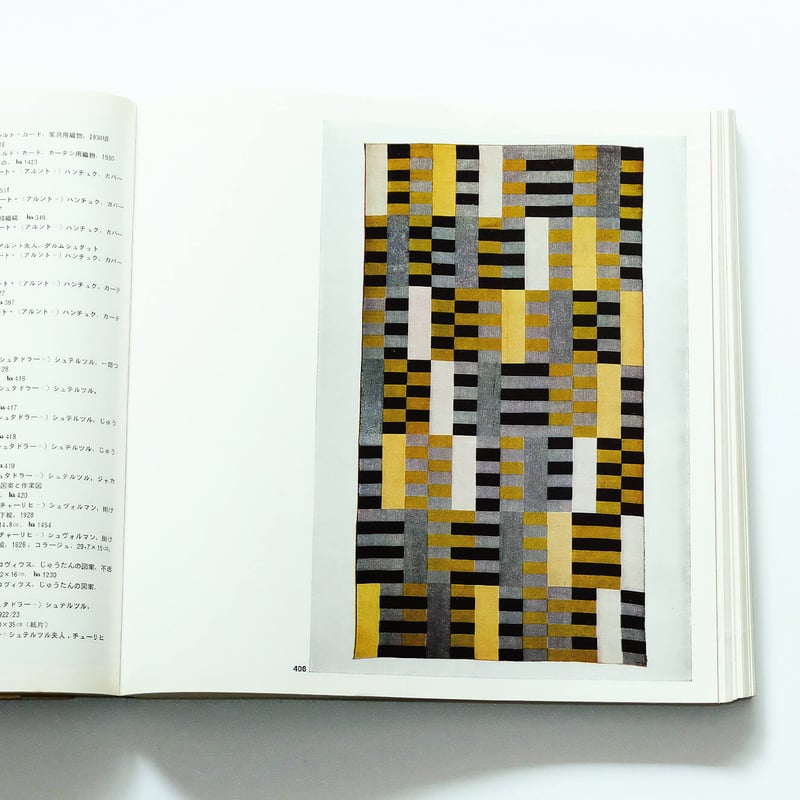 ルト・カード, 家具用織物, 1930頃
ルト・カード, カーテン用織物, 1930
の. ba 1423
ート・(アルント=) ハンチュク, カバー
ート・(アルント=) ハンチュク, カバー
ba 349
ート・(アルント=) ハンチュク, カバー
アルント夫人, ダルムシュタット
ート・(アルント=) ハンチュク, カバー
ート・(アルント=) ハンチュク, カーテ
27
ba 397
ート・(アルント=) ハンチュク, カーテ
シュタドラー=) シュテルツル, 一部つ
28
ba 416
シュタドラー=) シュテルツル,
ba 417
シュタドラー=) シュテルツル, じゅう
ba 418
シュタドラー=) シュテルツル, じゅう
ba 419
シュタドラー=) シュテルツル, ジャカ
図案と作業図
ba 420
チャーリヒ=) シュヴォルマン, 掛け
下絵, 1928
14.8㎝, ba 1454
チャーリヒ=) シュヴォルマン, 掛け
絵, 1928, コラージュ, 29.7×15㎝,
ロヴィウス, じゅうたんの図案, 不透
2×16㎝, ba 1230
ロヴィウス, じゅうたんの図案,
シュタドラー=) シュテルツル,
1922/23
0×35㎝ (紙片)
=シュテルツル夫人, チューリヒ
408